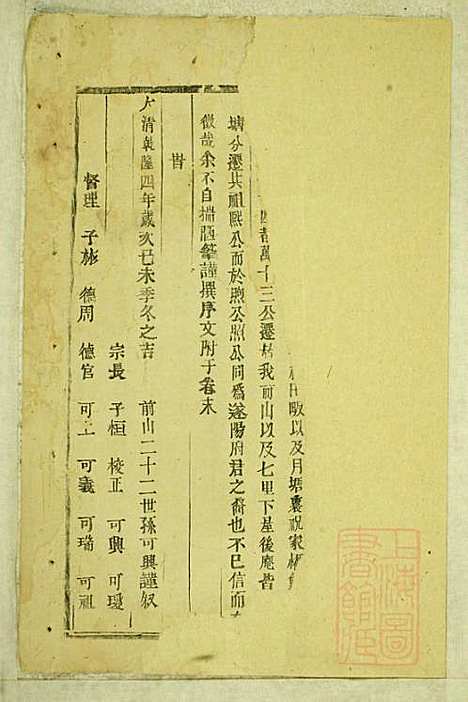 以及月塘裏祝家
者萬十三公遷居我前山以及七里下星後庵皆
塘分遷共祖熙公而於煦公照公同爲遂陽府君之裔也不已信而
徵哉余不自揣陋謹撰序文附于卷末
時
大清乾隆四年歲次己未季冬之吉 前山二十二世孫可興謹叙
宗長 子恒 校正 可興 可瑷
督理 子彬 德周 德官 可工 可義 可瑞 可祖
上海圖書館藏